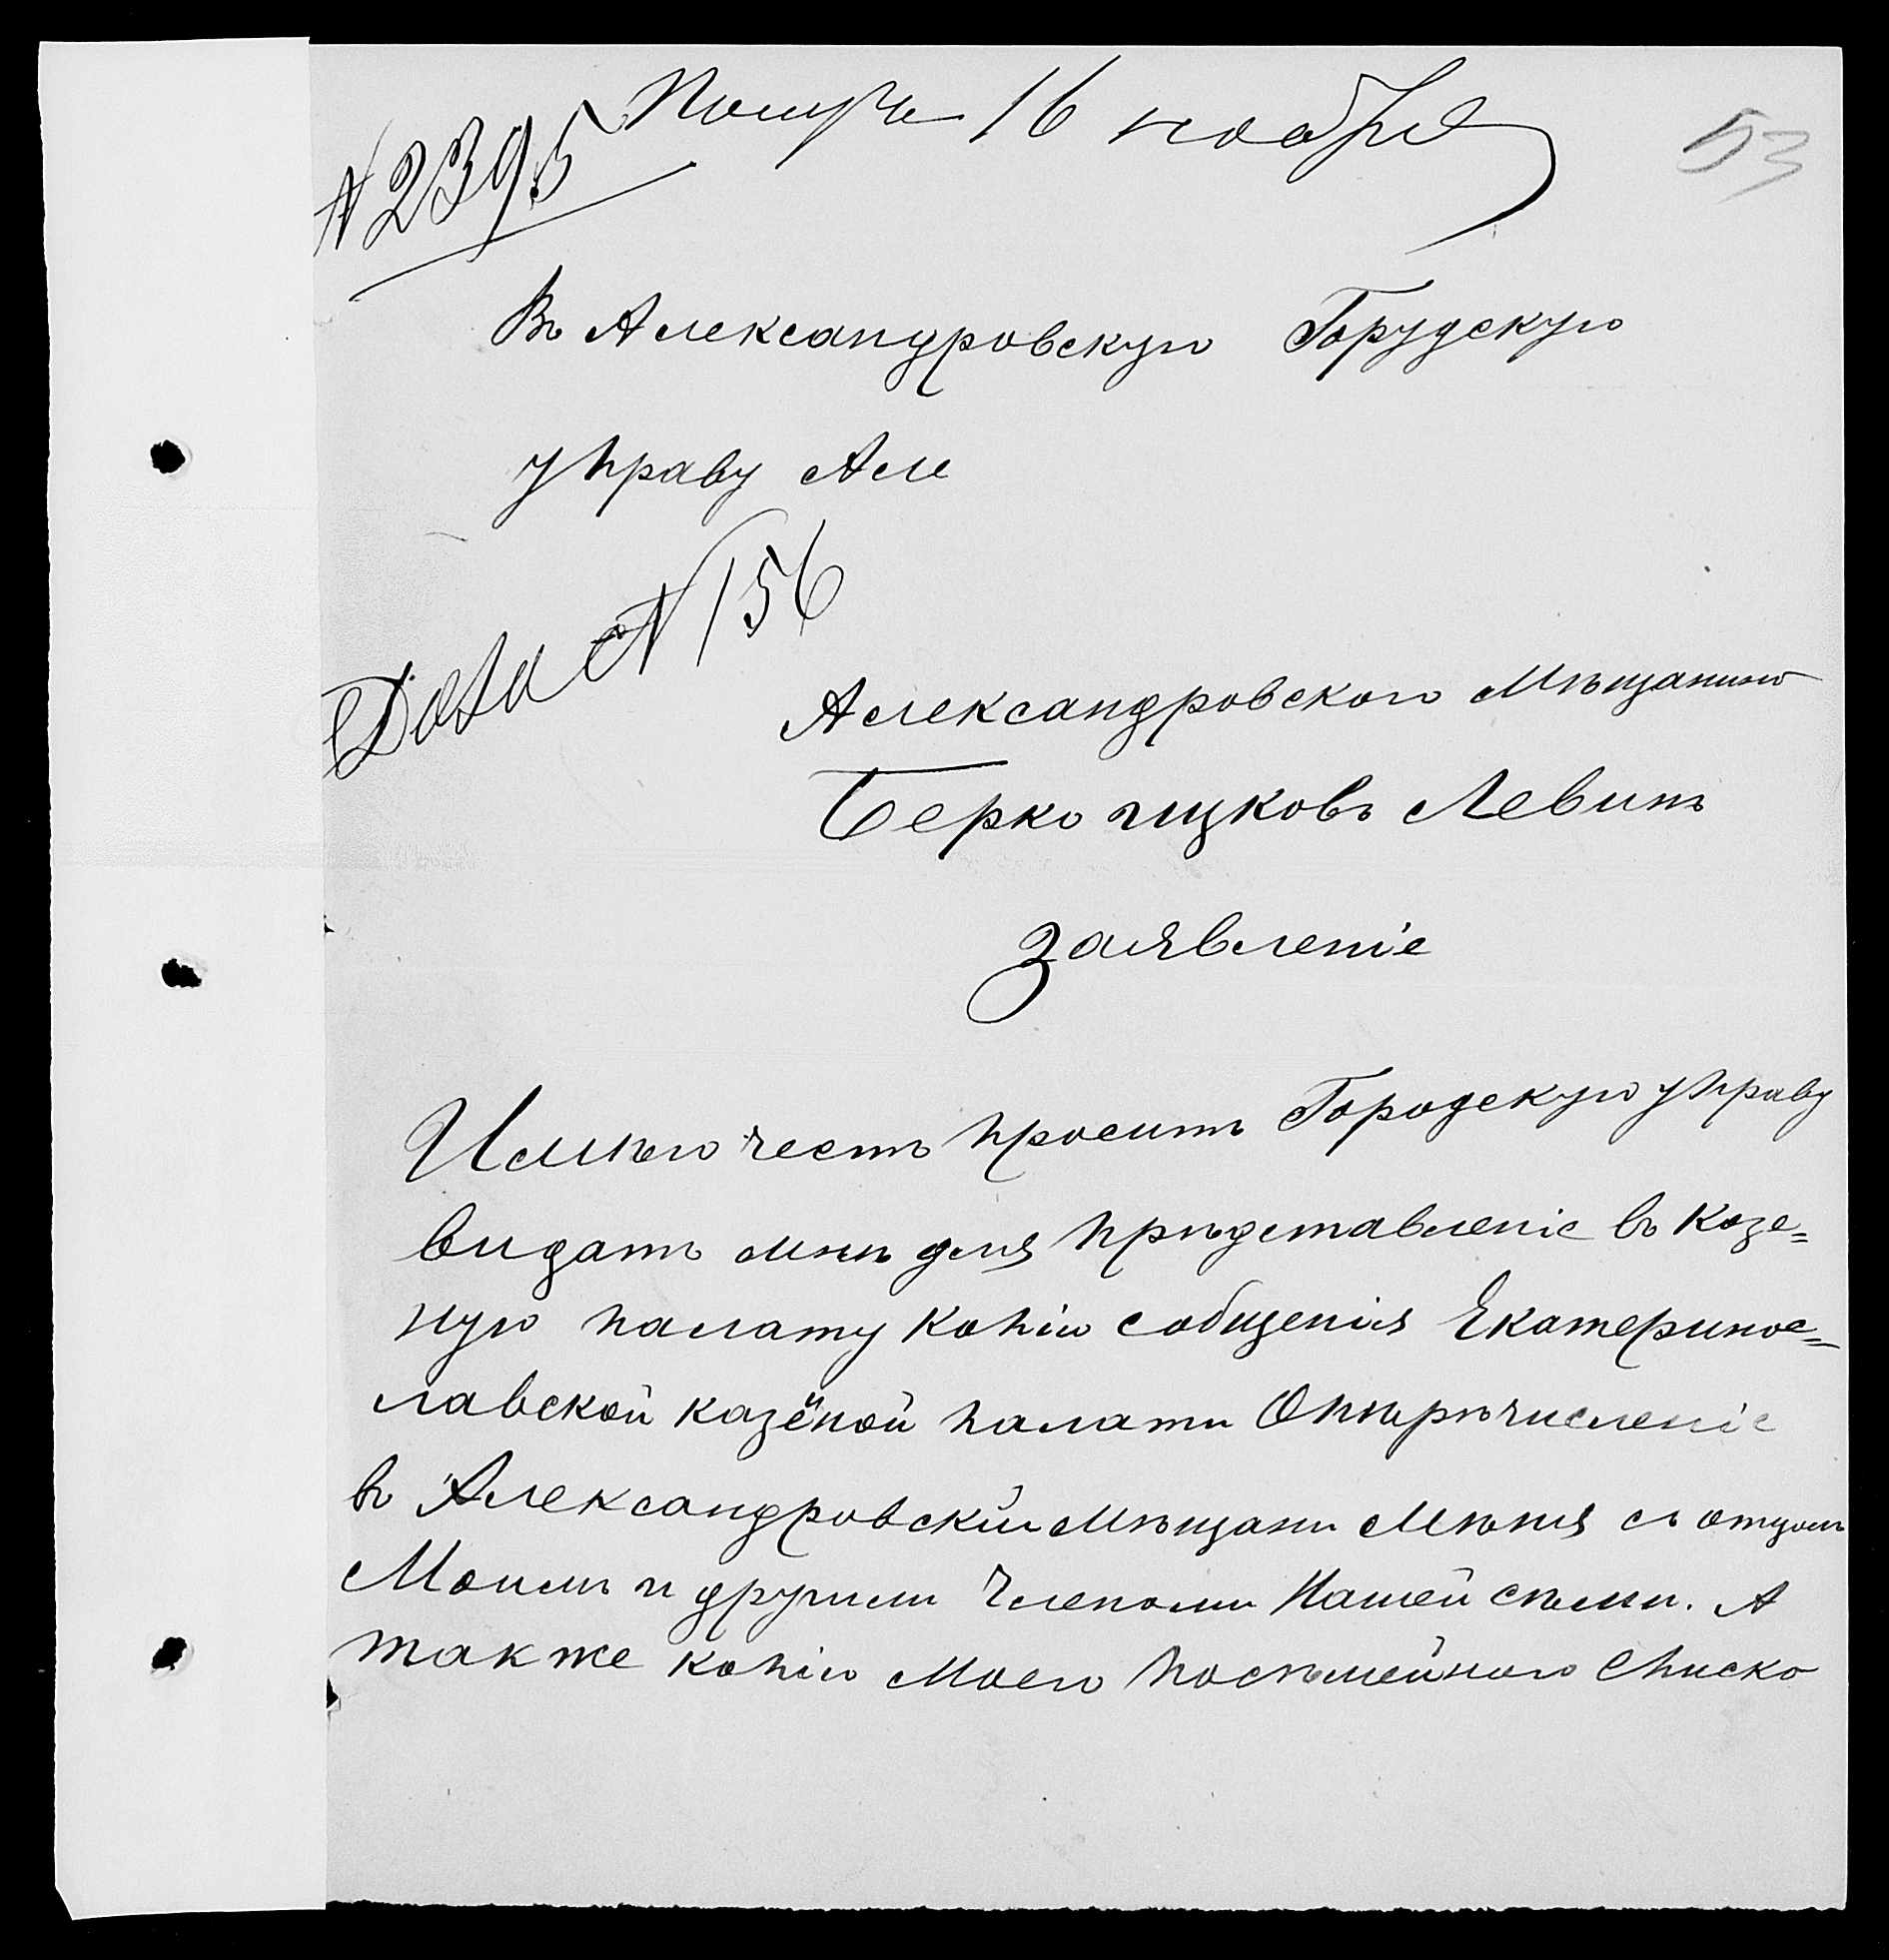 16 ноября
53
№ 2395
Въ Александровскую Горудскую
управу Але
Дѣла № 156
Александровского Мѣщанино
Берко ицковъ Левитъ
Заявленіе
Имѣю честь просить Городскую управу
видать мнѣ для прѣдставленіе въ казе=
ную палату копію собщенія Екатеринос=
лавской казёной палати Опѣрѣчисленіе
въ Александровскіи мѣщани Мѣня съ отцомъ
Моимъ и другими Членоми Нашей сѣми. А
также копію Моего посѣмейного Списко